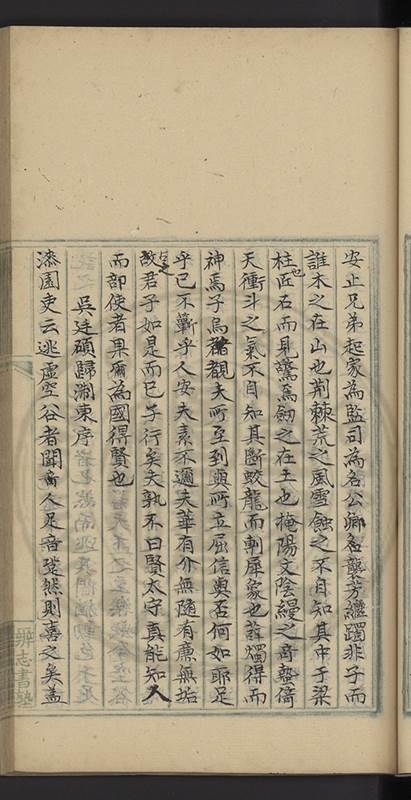 安止兄弟起家為監司為名公卿名襲芳繼躅非子而
誰木之在山也荊棘荒之風雪蝕之不自知其中于梁
柱也匠石而見驚焉劒之在土也掩陽文陰縵之奇蟄偹
天衝斗之氣不自知其斷蛟龍而剸犀象也蕣燭得而
神焉子烏覩夫所至到與所立屈信與否何如耶足
乎已不蘄乎人安夫素不邇夫華有介無隨有廉無垢
故君子如是而已子行矣夫孰不曰賢太守真能知人
而部使者果爾為國得賢也
吳廷碩歸淛東序
漆園吏云逃虛空谷者聞人足音跫然則喜之矣盖
辨志書塾